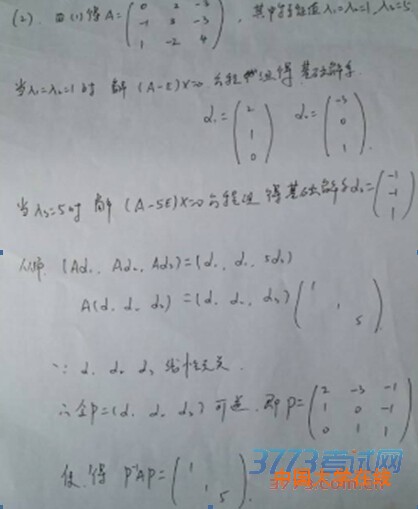 (2). 由(1)得 A=(0 2 -3
-1 3 -3
1 -2 4), 其中特征值λ₁=λ₂=1, λ₃=5
当λ₁=λ₂=1时 解 (A-E)X=0 方程组得基础解系.
α₁=(2
1
0) α₂=(-3
0
1).
当λ₃=5时 解 (A-5E)X=0方程组得基础解系α₃=(-1
-1
1)
(Aα₁, Aα₂, Aα₃)=(α₁, α₂, 5α₃)
A(α₁ α₂ α₃) =(α₁, α₂, α₃)(1
1
5).
∵ α₁ α₂ α₃ 线性无关.
∴令P=(α₁ α₂ α₃) 可逆. 即P=(2 -3 -1
1 0 -1
0 1 1)
使得 P⁻¹AP=(1
1
5).
3773考试网
中国无忧在线
3773.com.cn